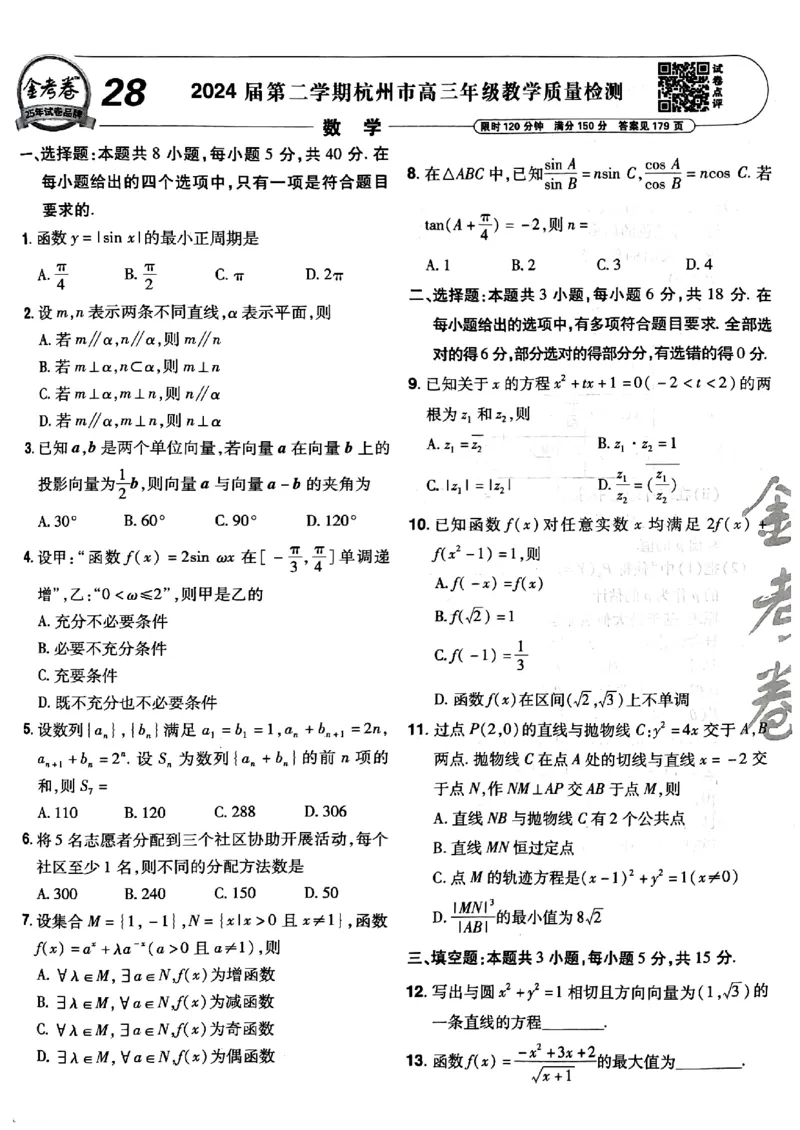 金考卷
25年试卷品牌
28
2024届第二学期杭州市高三年级教学质量检测
试卷点评
数 学
限时120分钟 满分150分 答案见179页
一、选择题:本题共8小题,每小题5分,共40分.在
每小题给出的四个选项中,只有一项是符合题目
要求的.
1.函数y=|sin x|的最小正周期是
A.π/4 B.π/2 C.π D.2π
2.设m,n表示两条不同直线,α表示平面,则
A.若m∥α,n∥α,则m∥n
B.若m⊥α,n⊂α,则m⊥n
C.若m⊥α,m⊥n,则n∥α
D.若m∥α,m⊥n,则n⊥α
3.已知a,b是两个单位向量,若向量a在向量b上的
投影向量为1/2b,则向量a与向量a-b的夹角为
A.30° B.60° C.90° D.120°
4.设甲:“函数f(x)=2sin ωx在[-π/3,π/4]单调递
增”,乙:“0<ω≤2”,则甲是乙的
A.充分不必要条件
B.必要不充分条件
C.充要条件
D.既不充分也不必要条件
5.设数列{aₙ},{bₙ}满足a₁=b₁=1,aₙ+bₙ₊₁=2n,
aₙ₊₁+bₙ=2ⁿ.设Sₙ为数列{aₙ+bₙ}的前n项的
和,则S₇=
A.110 B.120 C.288 D.306
6.将5名志愿者分配到三个社区协助开展活动,每个
社区至少1名,则不同的分配方法数是
A.300 B.240 C.150 D.50
7.设集合M={1,-1},N={x|x>0且x≠1},函数
f(x)=aˣ+λa⁻ˣ(a>0且a≠1),则
A.∀λ∈M,∃a∈N,f(x)为增函数
B.∃λ∈M,∀a∈N,f(x)为减函数
C.∀λ∈M,∃a∈N,f(x)为奇函数
D.∃λ∈M,∀a∈N,f(x)为偶函数
8.在△ABC中,已知sin A/sin B=nsin C,cos A/cos B=ncos C.若
tan(A+π/4)=-2,则n=
A.1 B.2 C.3 D.4
二、选择题:本题共3小题,每小题6分,共18分.在
每小题给出的选项中,有多项符合题目要求.全部选
对的得6分,部分选对的得部分分,有选错的得0分.
9.已知关于x的方程x²+tx+1=0(-2<t<2)的两
根为z₁和z₂,则
A.z₁=z̅₂ B.z₁·z₂=1
C.|z₁|=|z₂| D.z₁/z₂=(z̅₁/z₂)
10.已知函数f(x)对任意实数x均满足2f(x)+
f(x²-1)=1,则
A.f(-x)=f(x)
B.f(√2)=1
C.f(-1)=1/3
D.函数f(x)在区间(√2,√3)上不单调
11.过点P(2,0)的直线与抛物线C:y²=4x交于A,B
两点.抛物线C在点A处的切线与直线x=-2交
于点N,作NM⊥AP交AB于点M,则
A.直线NB与抛物线C有2个公共点
B.直线MN恒过定点
C.点M的轨迹方程是(x-1)²+y²=1(x≠0)
D.|MN|³/|AB|的最小值为8√2
三、填空题:本题共3小题,每小题5分,共15分.
12.写出与圆x²+y²=1相切且方向向量为(1,√3)的
一条直线的方程______.
13.函数f(x)=-x²+3x+2/√x+1的最大值为______.
金考卷